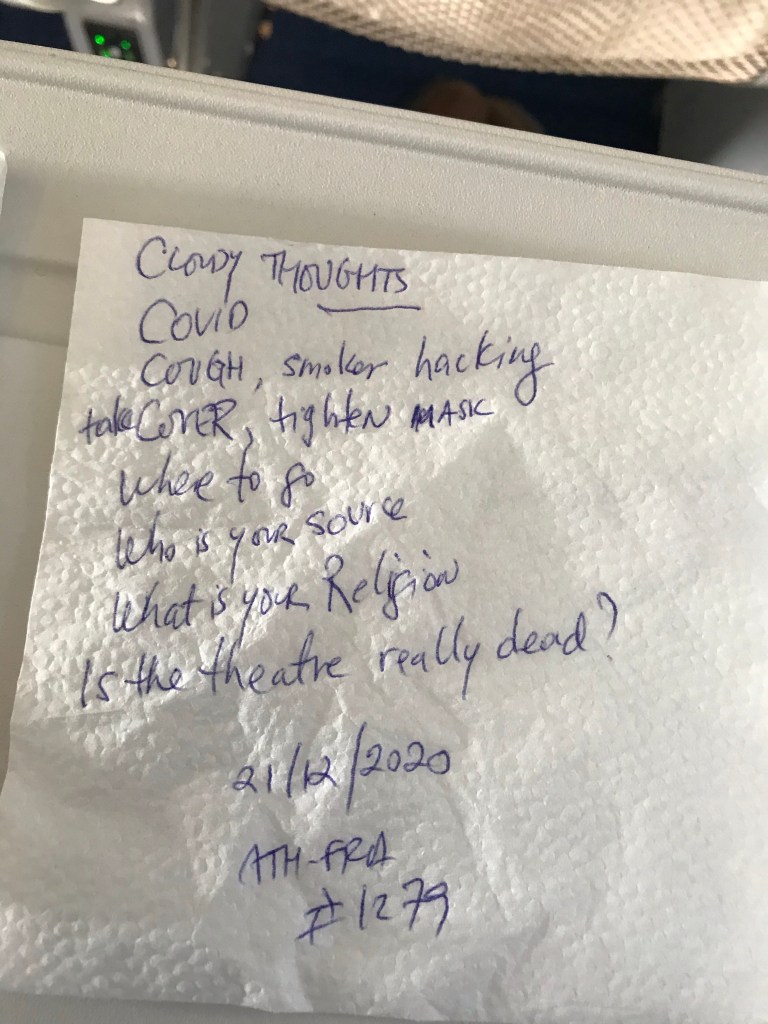 CLOUDY THOUGHTS
COVID
COUGH, smoker hacking
take COVER, tighten MASK
whee to go
Who is your source
What is your Religion
Is the theatre really dead?
21/12/2020
ATH-FRA
#1279